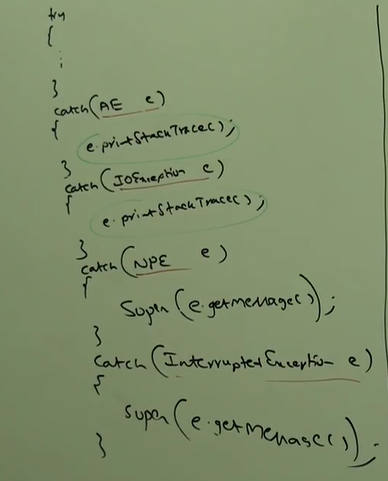 try
{
:
}
catch(AE e)
{
e.printStackTrace();
}
catch(IOException e)
{
e.printStackTrace();
}
catch(NPE e)
{
Sopln(e.getMessage());
}
catch(InterruptedException e)
{
Sopln(e.getMessage());
}